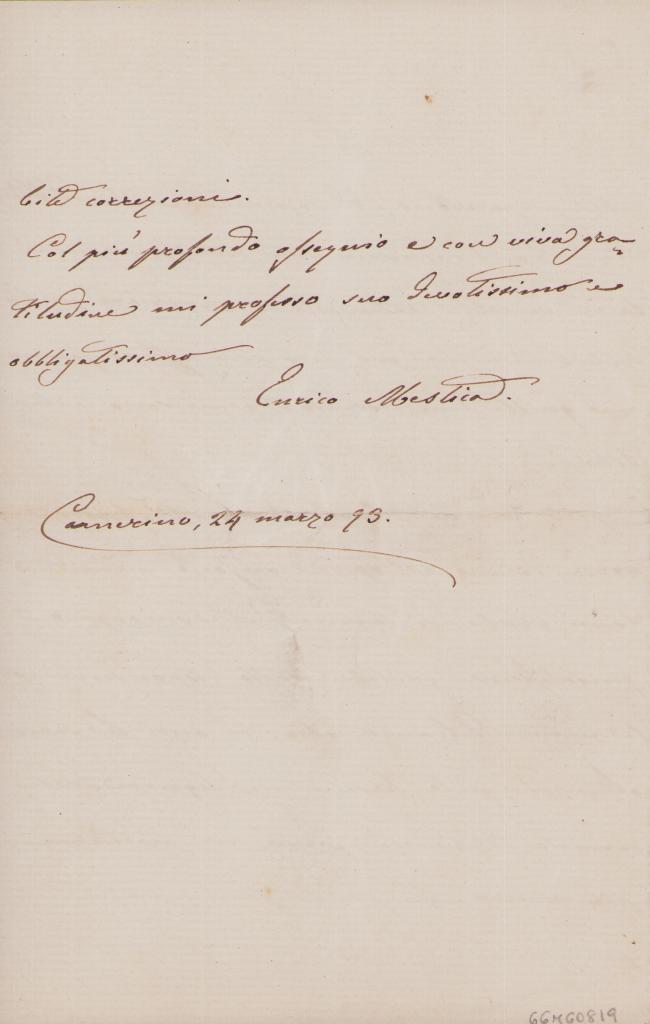 bile correzioni.
Col più profondo ossequio e con viva gra-
titudine mi professo suo devotissimo e
obbligatissimo
Enrico Mestica.
Camerino, 24 marzo 93.
66MG0819